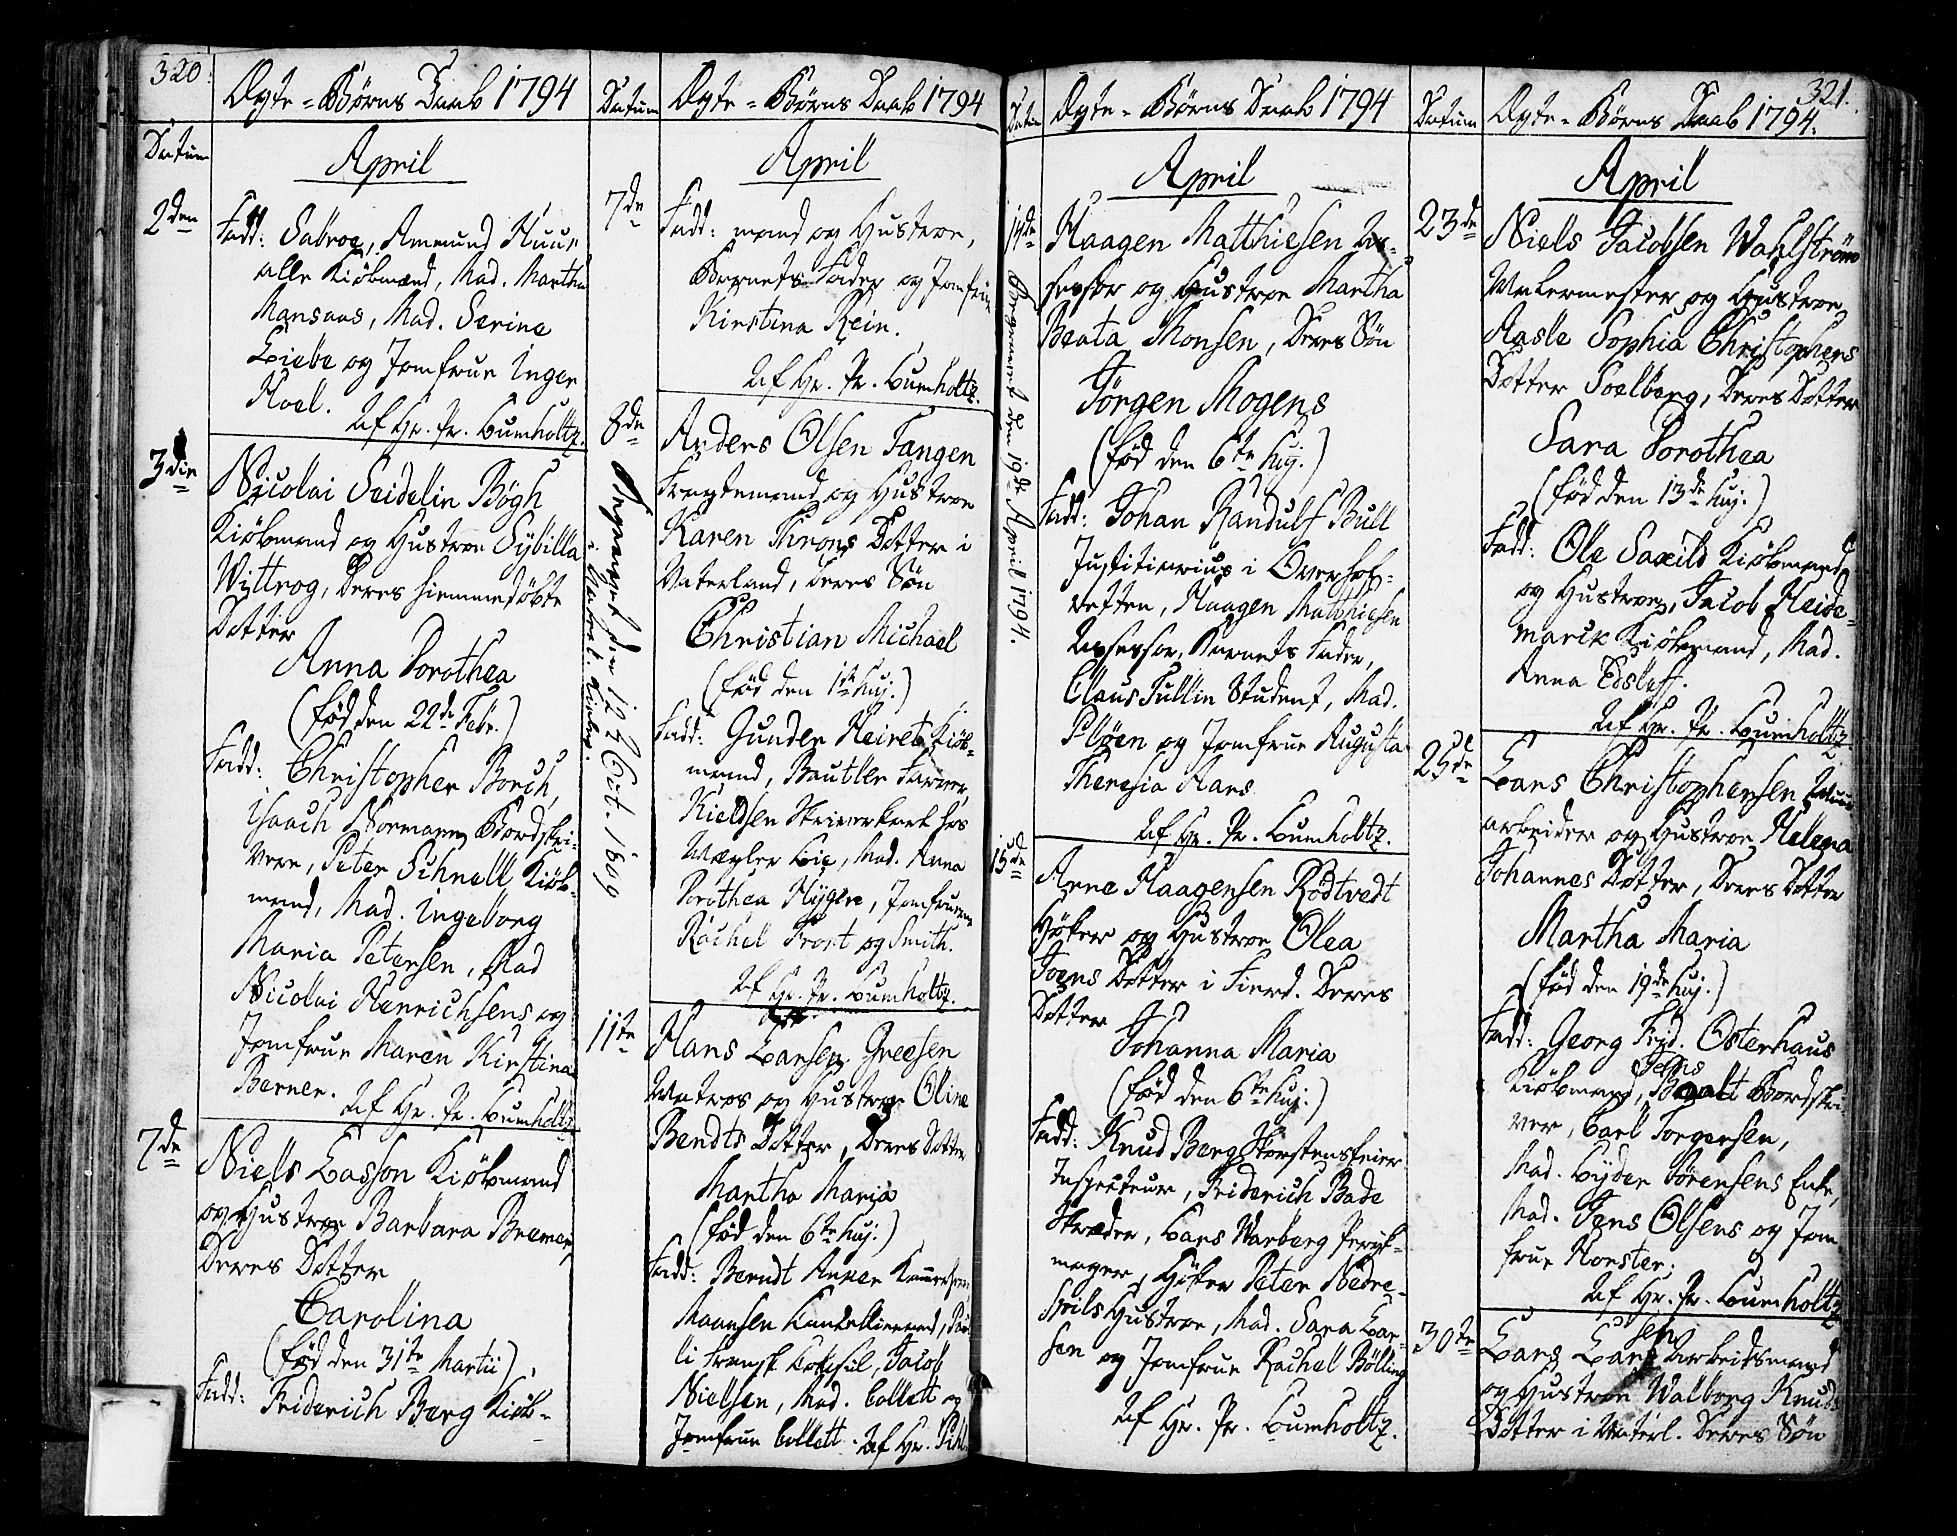 320.
Ægte-Børns Daab 1794
Datum
April
2den
Fadd: Sabroe, Amund Huus
alle Kiöbmænd, Mad. Martha
Mansaas, Mad. Serina
Liebe og Jomfrue Inger
Hoel.
Af Hr. Pr. Lumholtz.
3die
Nicolai Seidelin Bøgh
Kiöbmand og Hustroe Sÿbilla
Wittrog, Deres hiemmedöbte
Dotter
Anna Dorothea
(född den 22de Febr.)
Fadd: Christopher Borch,
Isaach Normann Bordskri-
vere, Peter Schnell Kiöb-
mand, Mad. Ingeborg
Maria Petersen, Mad
Nicolai Henrichsens og
Jomfrue Maren Kirstina
Berner.
Af Hr. Pr. Lumholtz
7de
Niels Lasson Kiöbmand
og Hustroe Barbara Bremer,
Deres Dotter
Carolina
(född den 31te Martii)
Fadd: Friderich Berg Kiöb-
Datum
Ægte-Børns Daab 1794
April
7de
Fadd: mand og Hustroe,
Barnets Fader og Jomfrue
Kirstina Rein.
Af Hr. Pr. Lumholtz.
8de
Anders Olsen Tangen
Fragtemand og Hustroe
Karen Throns Dotter i
Vaterland, deres Søn
Christian Michael
(född den 1te huj:)
Fadd: Gunder Heiret Kiöb-
mand,
Kieldsen Skriverkarl hos
Mægler Lie, Mad. Anna
Dorothea Hÿgere, Jomfruerne
Rachel Frost og Smith.
Af Hr. Pr. Lumholtz.
11te
Hans Larsen Greesen
Matros og Hustroe Oline
Bendts Dotter, Deres Dotter
Martha Maria
(född den 6te huj:)
Fadd: Berndt Anker Kammerherre,
Maansen Kancellieraad,
li Fransk Consul, Jacob
Nielsen, Mad. Collett og
Jomfrue Collett. Af Hr.
Begravet den 12 Oct. 1809
Datum
Ægte-Børns Daab 1794
April
14de
Haagen Matthiesen As-
sessor og Hustroe Martha
Beata Monsen, Deres Søn
Jörgen Mogens
(född den 6te huj.)
Fadd: Johan Randulf Bull
Justitiarius i Overhof-
retten, Haagen Matthiesen
Assessor, Barnets Fader,
Claus Tullin Student, Mad.
Pløen og Jomfrue Augusta
Theresia Hars
Af Hr. Pr. Lumholtz.
Begravet den 19de April 1794.
15de
Arne Haagensen Rödtvedt
Höker og Hustroe Olea
Joens Dotter i Fierd. Deres
Dotter
Johanna Maria
(född den 6te huj:)
Fadd: Knud Berg Skorstensfeier
Inspecteur, Friderich Bade
Skræder, Lars Warberg Peryk-
mager, Höker Peter Nedre-
spils Hustroe, Mad. Sara Lar-
sen og Jomfrue Rachel Bölling
Af Hr. Pr. Lumholtz.
321.
Datum
Ægte-Børns Daab 1794.
April
23de
Niels Jacobsen Wahlström
Malermester og Hustroe
Aasle Sophia Christophers
Dotter Soelberg, Deres Dotter
Sara Dorothea
(född den 13de huj:)
Fadd: Ole Saxild Kiöbmand
og Hustroe, Jacob Heide-
marck Kiöbmand, Mad.
Anna Edsleff.
Af Hr. Pr. Lumholtz.
25de
Lars Christophersen Muur
arbeider og Hustroe Helena
Johannes Dotter, Deres Dotter
Martha Maria
(född den 19de huj.)
Fadd: Georg Frid. Osterhaus
Kiöbmand, Jens Bordskri
ver, Carl Torgersen,
Mad. Lyder Sörensens Enke,
Mad. Jens Olsens og Jom
frue Horster.
Af Hr. Pr. Lumholtz
30te
Lars Larssen Arbeidsmand
og Hustroe Walborg Knuds
Dotter i Vaterl. Deres Søn